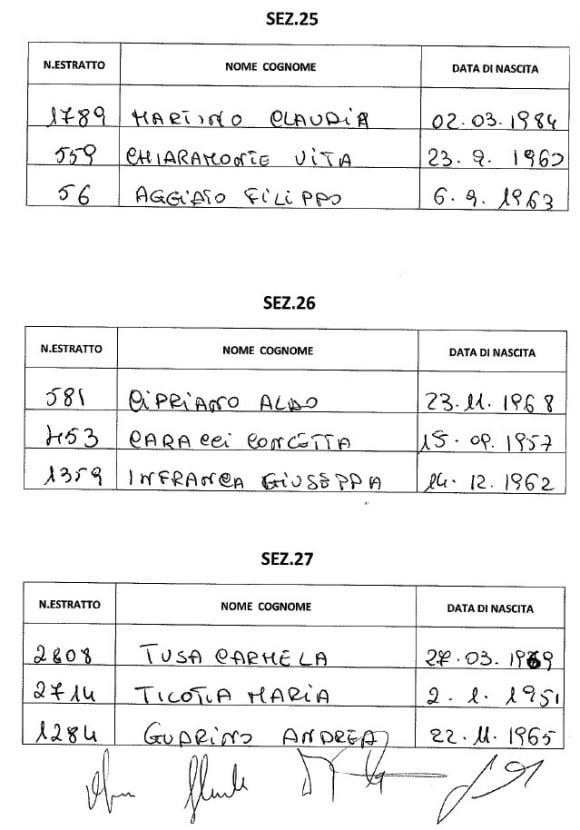 SEZ.25
N.ESTRATTO NOME COGNOME DATA DI NASCITA
1789 MARTINO CLAUDIA 02.03.1984
559 CHIARAMONTE VITA 23.9.1960
56 AGGIATO FILIPPO 6.9.1963
SEZ.26
N.ESTRATTO NOME COGNOME DATA DI NASCITA
581 CIPRIANO ALDO 23.11.1968
453 CARACCI CONCETTA 15.09.1957
1359 INFRANCA GIUSEPPA 14.12.1962
SEZ.27
N.ESTRATTO NOME COGNOME DATA DI NASCITA
2608 TUSA CARMELA 27.03.1969
2714 MARIA 2.1.1951
1284 GUARINO ANDREA 22.11.1965